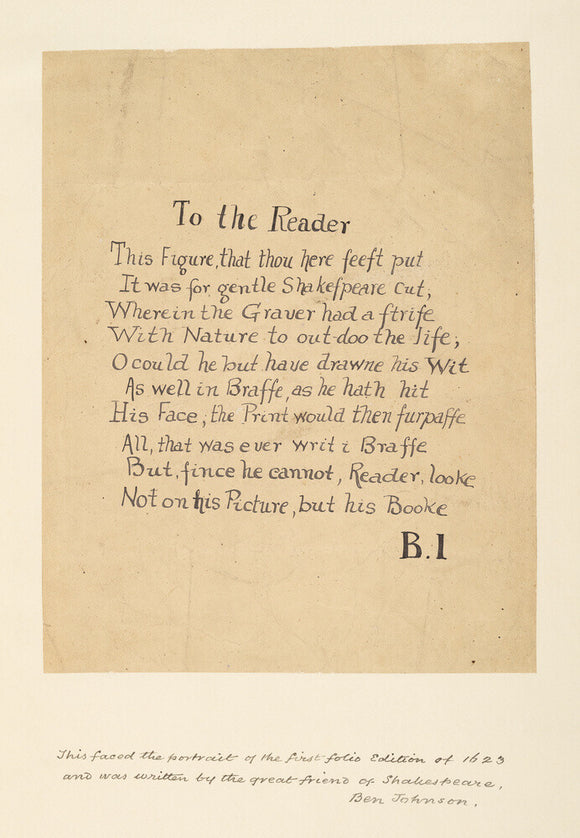 To the Reader
This Figure, that thou here seest put
It was for gentle Shakespeare cut,
Wherein the Graver had a strife
With Nature to out-doo the life;
O could he but have drawne his Wit
As well in Brasse, as he hath hit
His Face; the Print would then surpasse
All, that was ever writ i Brasse
But, since he cannot, Reader, looke
Not on his Picture, but his Booke
B.I
This faced the portrait of the first folio Edition of 1623
and was written by the great friend of Shakespeare,
Ben Johnson.